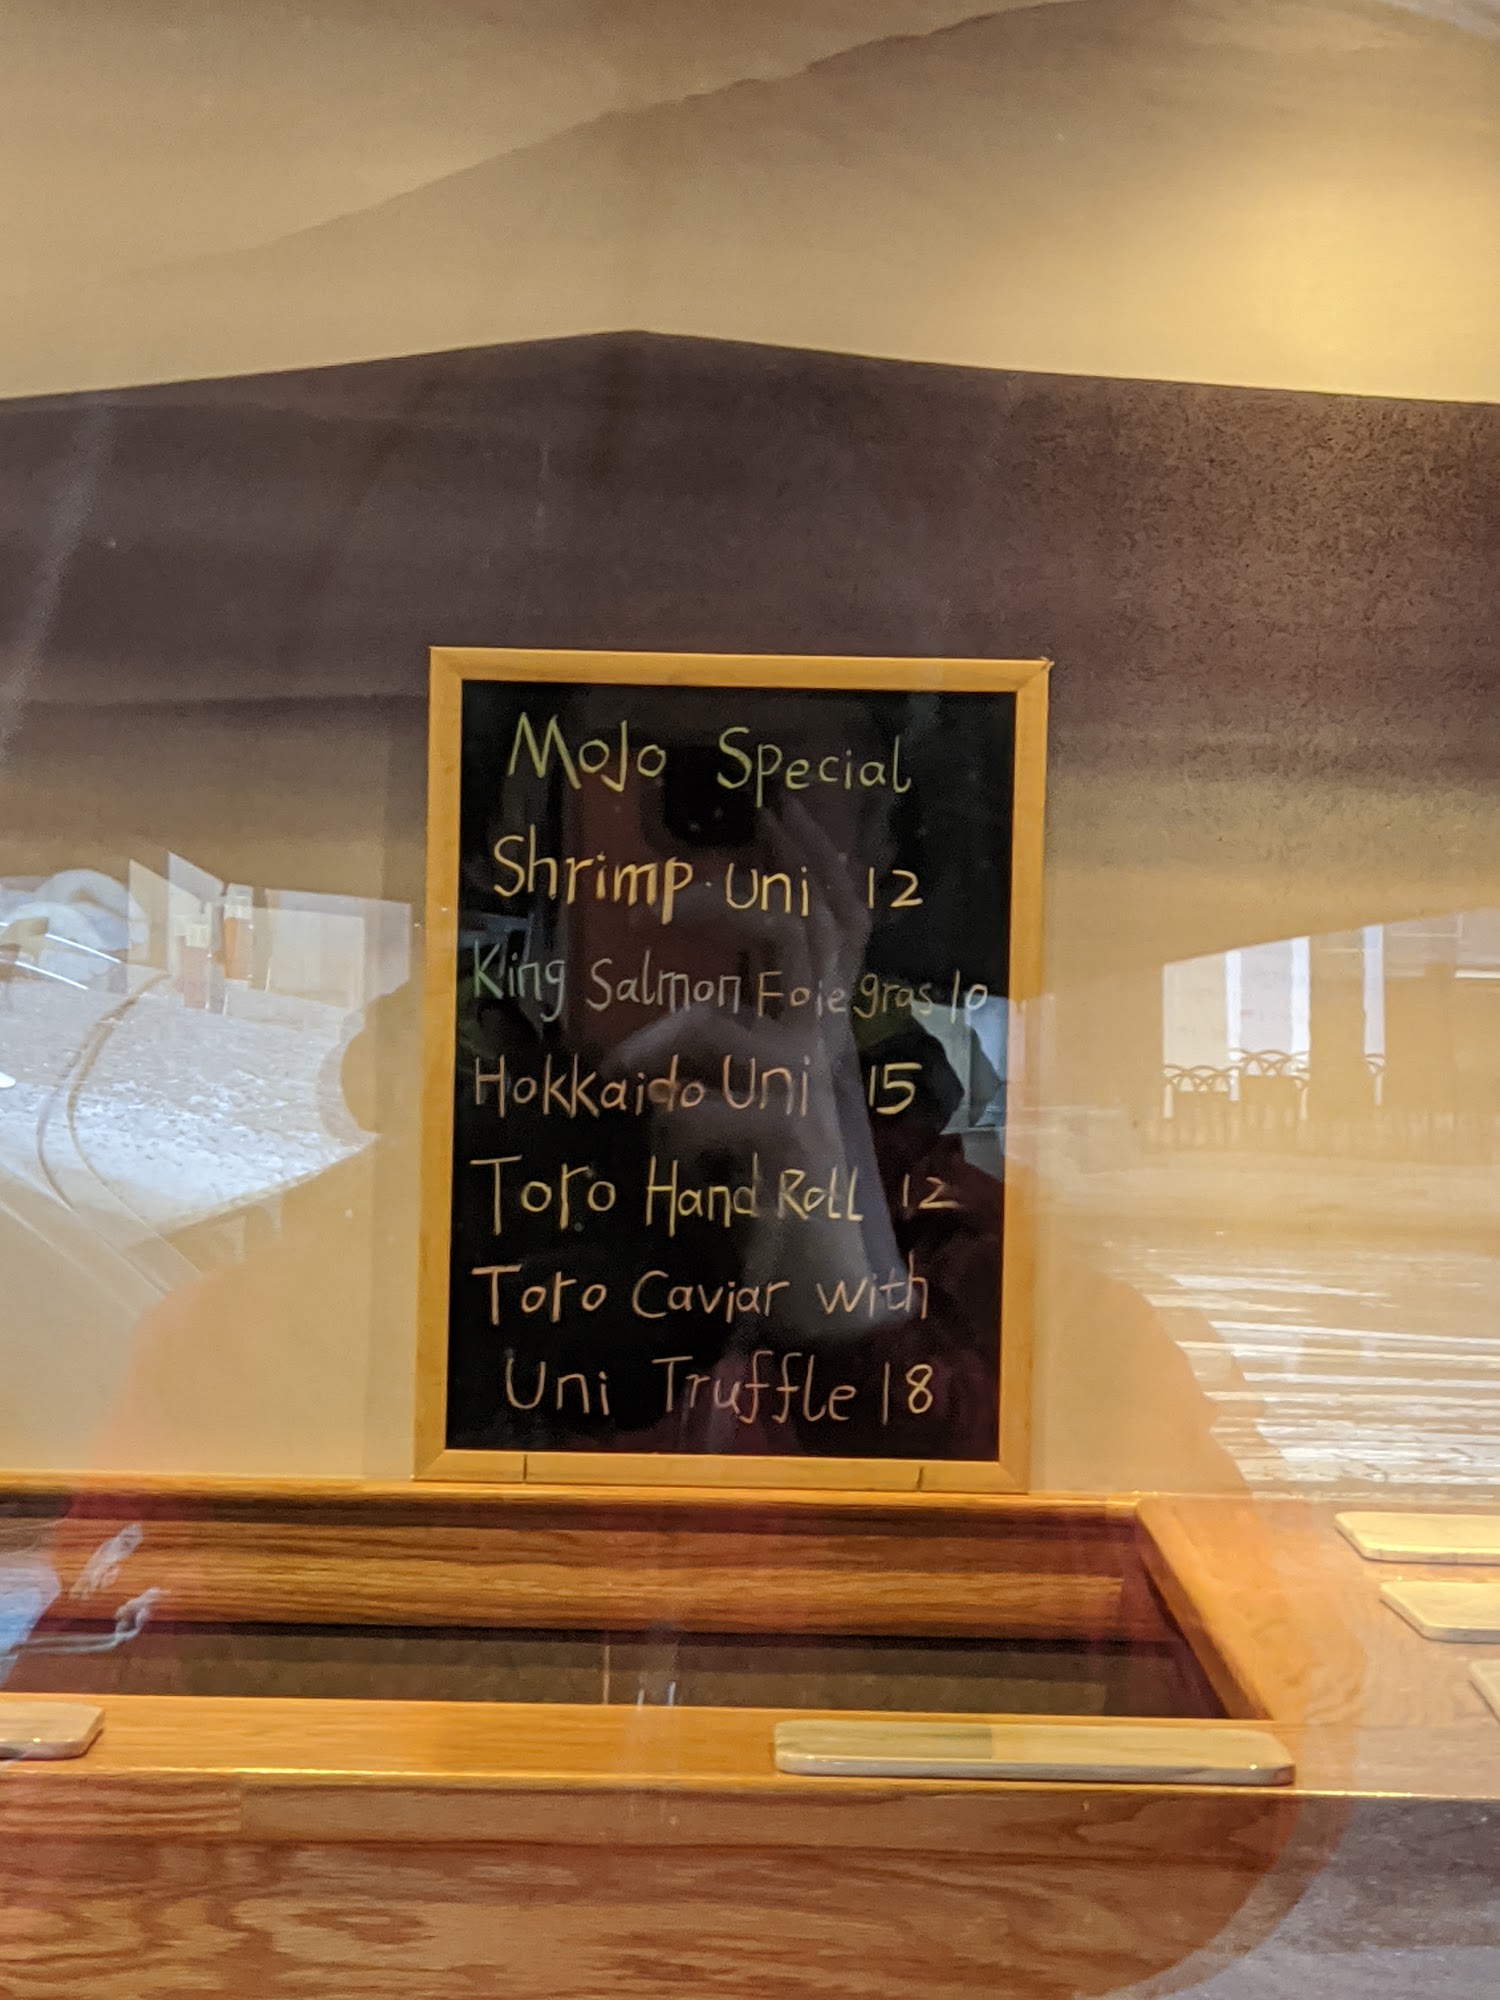 MoJo Special
Shrimp Uni 12
King Salmon Foie gras 10
Hokkaido Uni 15
Toro Hand Roll 12
Toro Caviar with
Uni Truffle 18